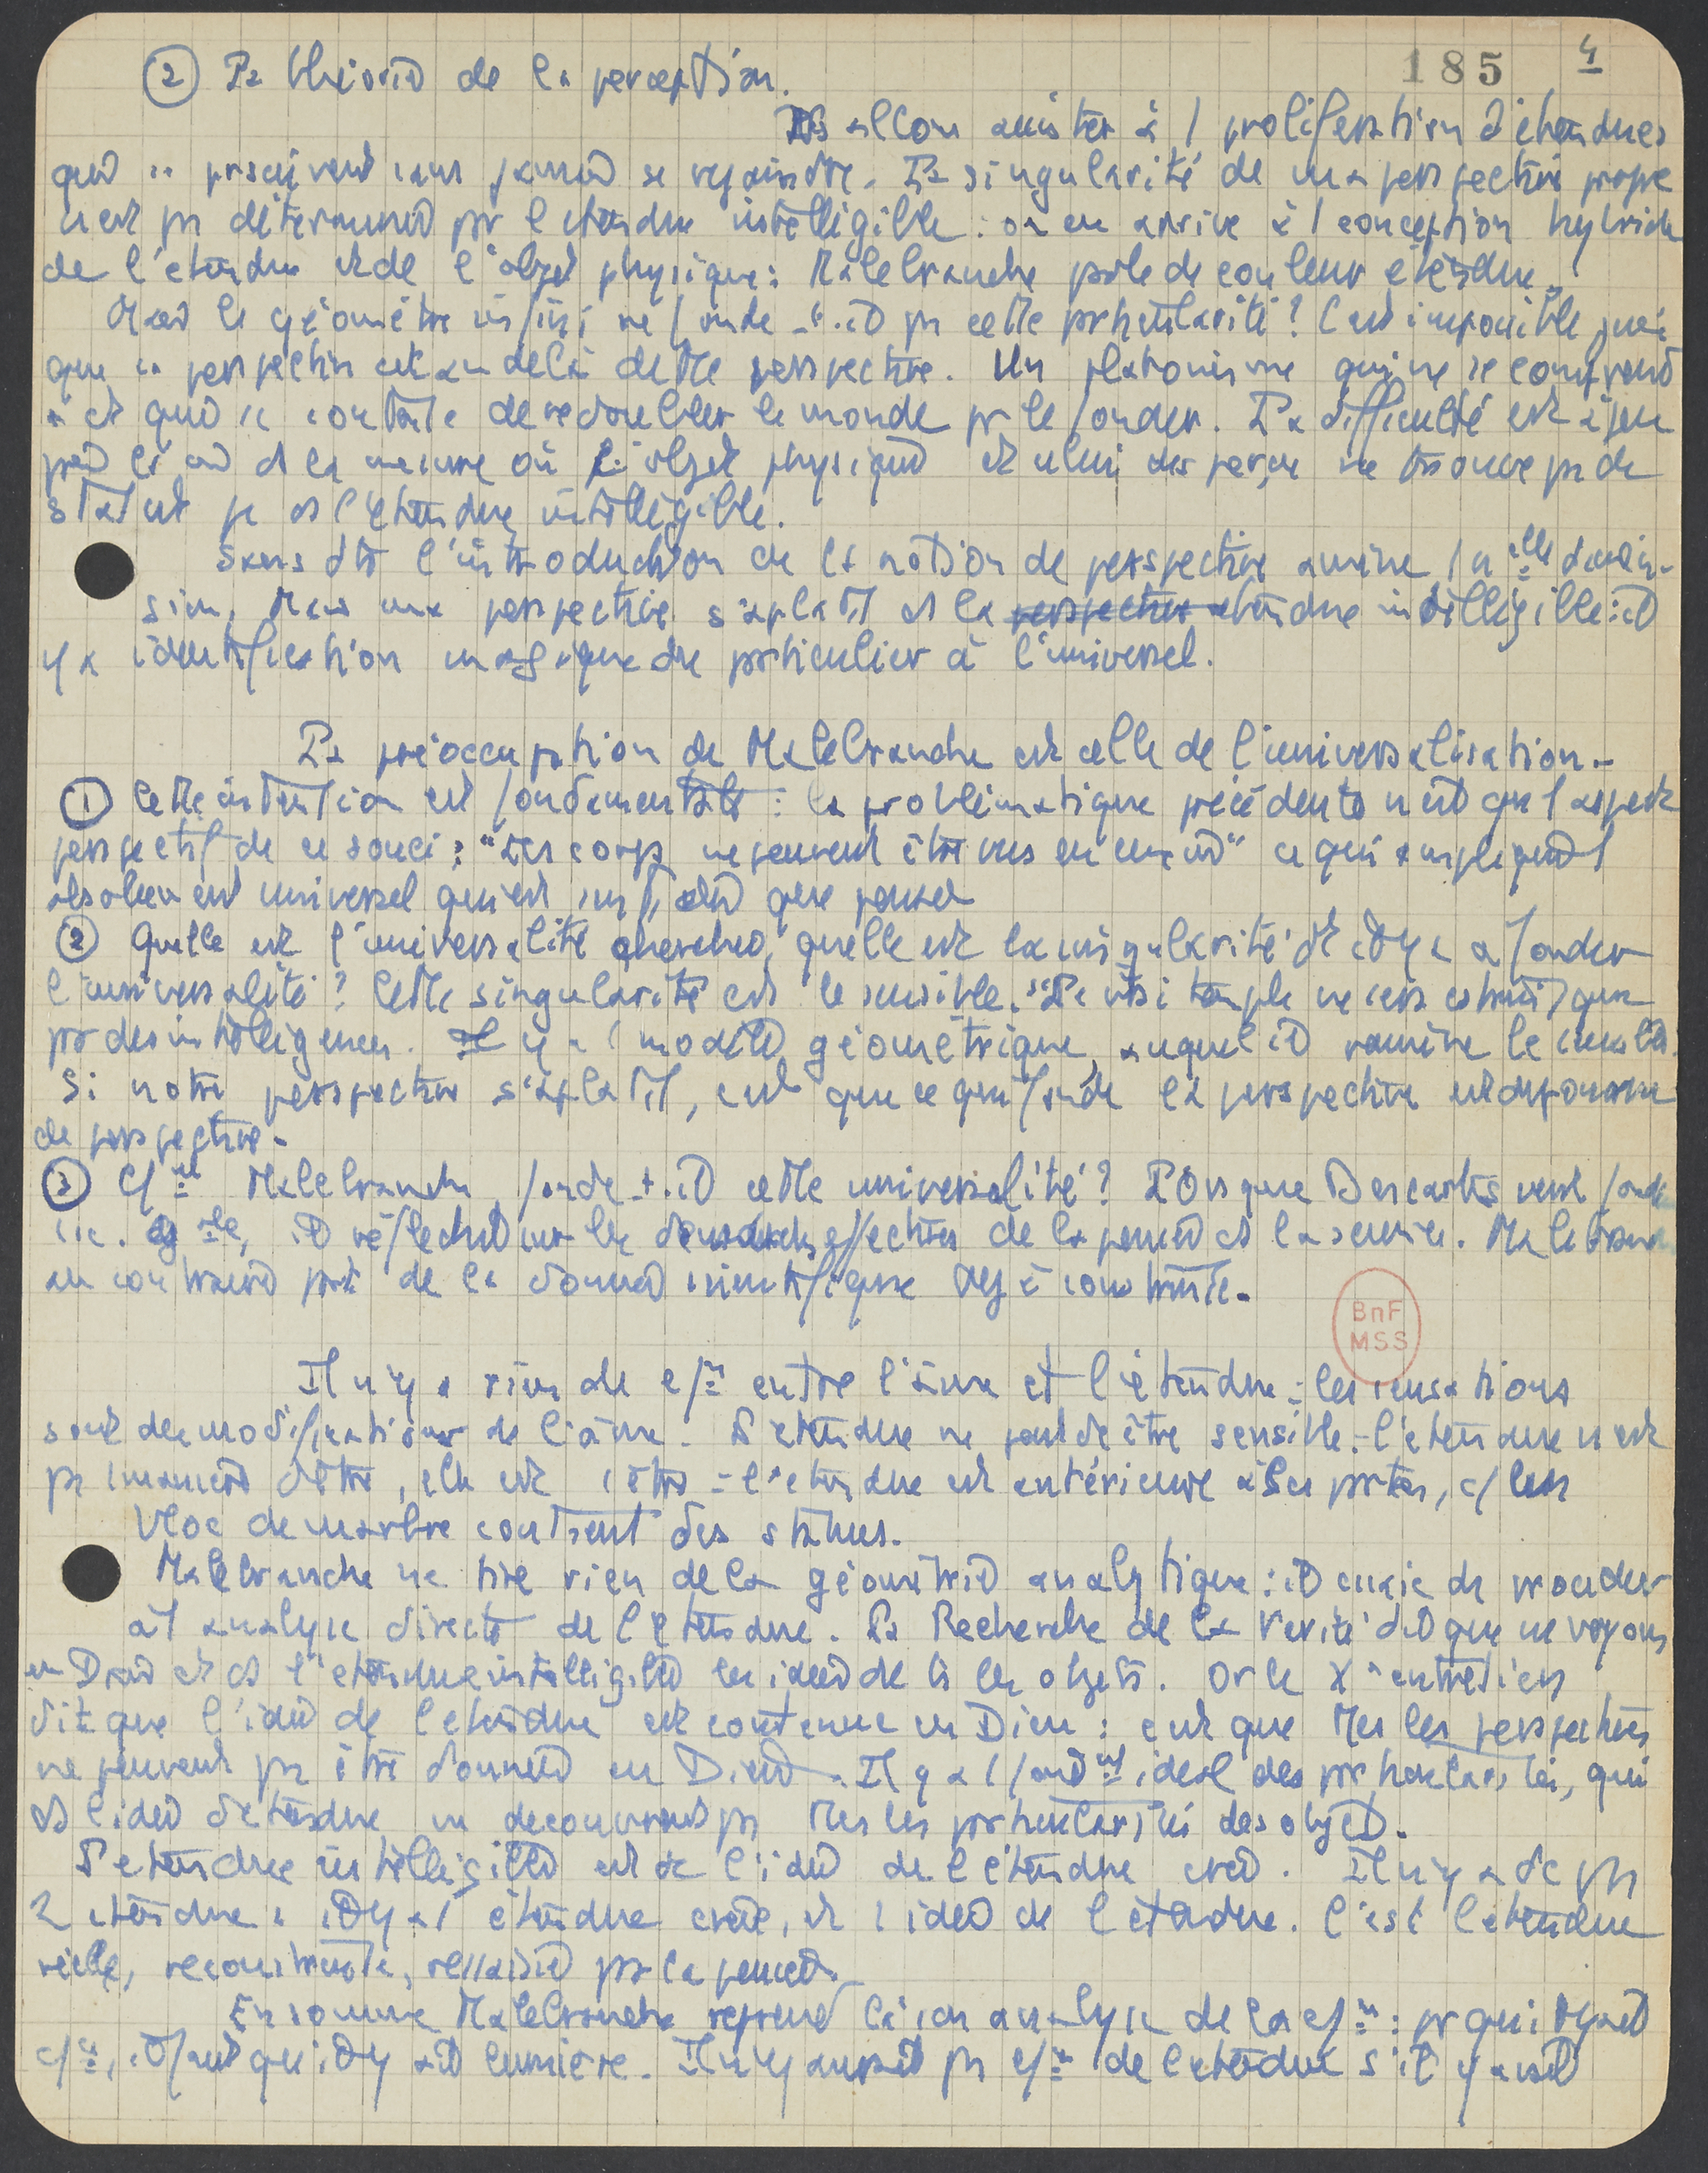 185 4
② La théorie de la perception.
Ns allons assister à 1 prolifération d'étendues
qui se poursuivent sans jamais se rejoindre. La singularité de ma perspective propre
n'est pr déterminée pr l'étendue intelligible : on en arrive à 1 conception hybride
de l'étendue et de l'objet physique : Malebranche parle de couleur étendue.
Mais le géomètre infini ne fonde-t-il pr cette particularité ? C'est impossible puis
que sa perspective est au delà de tte perspective. Un platonisme qui ne se comprend
et qui se contente de redoubler le monde pr le fonder. La difficulté est
ds la mesure où l'objet physique et celui des perçu ne trouve pr de
statut pr ds l'étendue intelligible.
Sans dte l'introduction de la notion de perspective amène 1 nlle dimen-
sion. Mais ma perspective s'aplatit ds la perspective étendue intelligible : il
y a identification magique du particulier à l'universel.
La préoccupation de Malebranche est celle de l'universalisation.
① Cette intention est fondamentale : la problématique précédente n'est que l'aspect
perspectif de ce souci : "Les corps ne peuvent être vus en eux-" ce qui
absolument universel qui est que penser
② Quelle est l'universalité cherchée, quelle est la singularité dt il y a à fonder
l'universalité ? Cette singularité est le sensible. "Le vrai temple ne sera construit que
pr des intelligences. Il y a 1 modèle géométrique, auquel il ramène le sensible.
Si notre perspective s'aplatit, c'est que ce qui fonde la perspective est dépourvu
de perspective.
③ C/nt Malebranche fonde-t-il cette universalité ? Lorsque Descartes veut fonder
il réfléchit sur les démarches effectives de la pensée ds la science. Malebranche
au contraire part de la donnée scientifique déjà construite.
BnF
MSS
Il n'y a rien de c/n entre l'âme et l'étendue : les sensations
sont des modifications de l'âme. L'étendue ne peut dc être sensible. - l'étendue n'est
pr 1 manière d'être, elle est 1 être - l'étendue est antérieure à ses parties, c/ un
bloc de marbre contient des statues.
Malebranche ne tire rien de la géométrie analytique : il essaie de procéder
à 1 analyse directe de l'étendue. La Recherche de la Vérité dit que ns voyons
en Dieu et ds l'étendue intelligible les idées de ts les objets. Or le Xe entretien
dit que l'idée de l'étendue est contenue en Dieu : c'est que ttes les perspectives
ne peuvent pr être données en Dieu. Il y a 1 fondnt idéal des particularités, qui
ds l'idée d'étendue ne découvrent pr ttes les particularités des objets.
L'étendue intelligible est dc l'idée de l'étendue créée. Il n'y a dc pr
2 étendues : il y a l'étendue créée, et l'idée de l'étendue. C'est l'étendue
réelle, reconstruite, ressaisie par la pensée.
En somme Malebranche reprend ici son analyse de la c/n : pr qu'il y ait
c/n, il faut qu'il y ait lumière. Il n'y aurait pr c/n de l'étendue s'il y avait